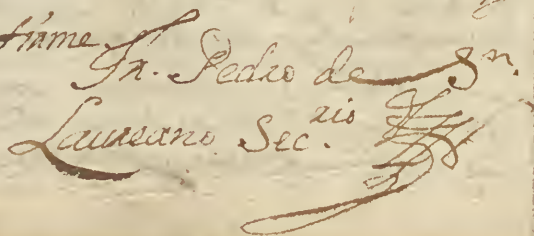 firme
Fr. Pedro de Sn.
Laureano Sec.rio